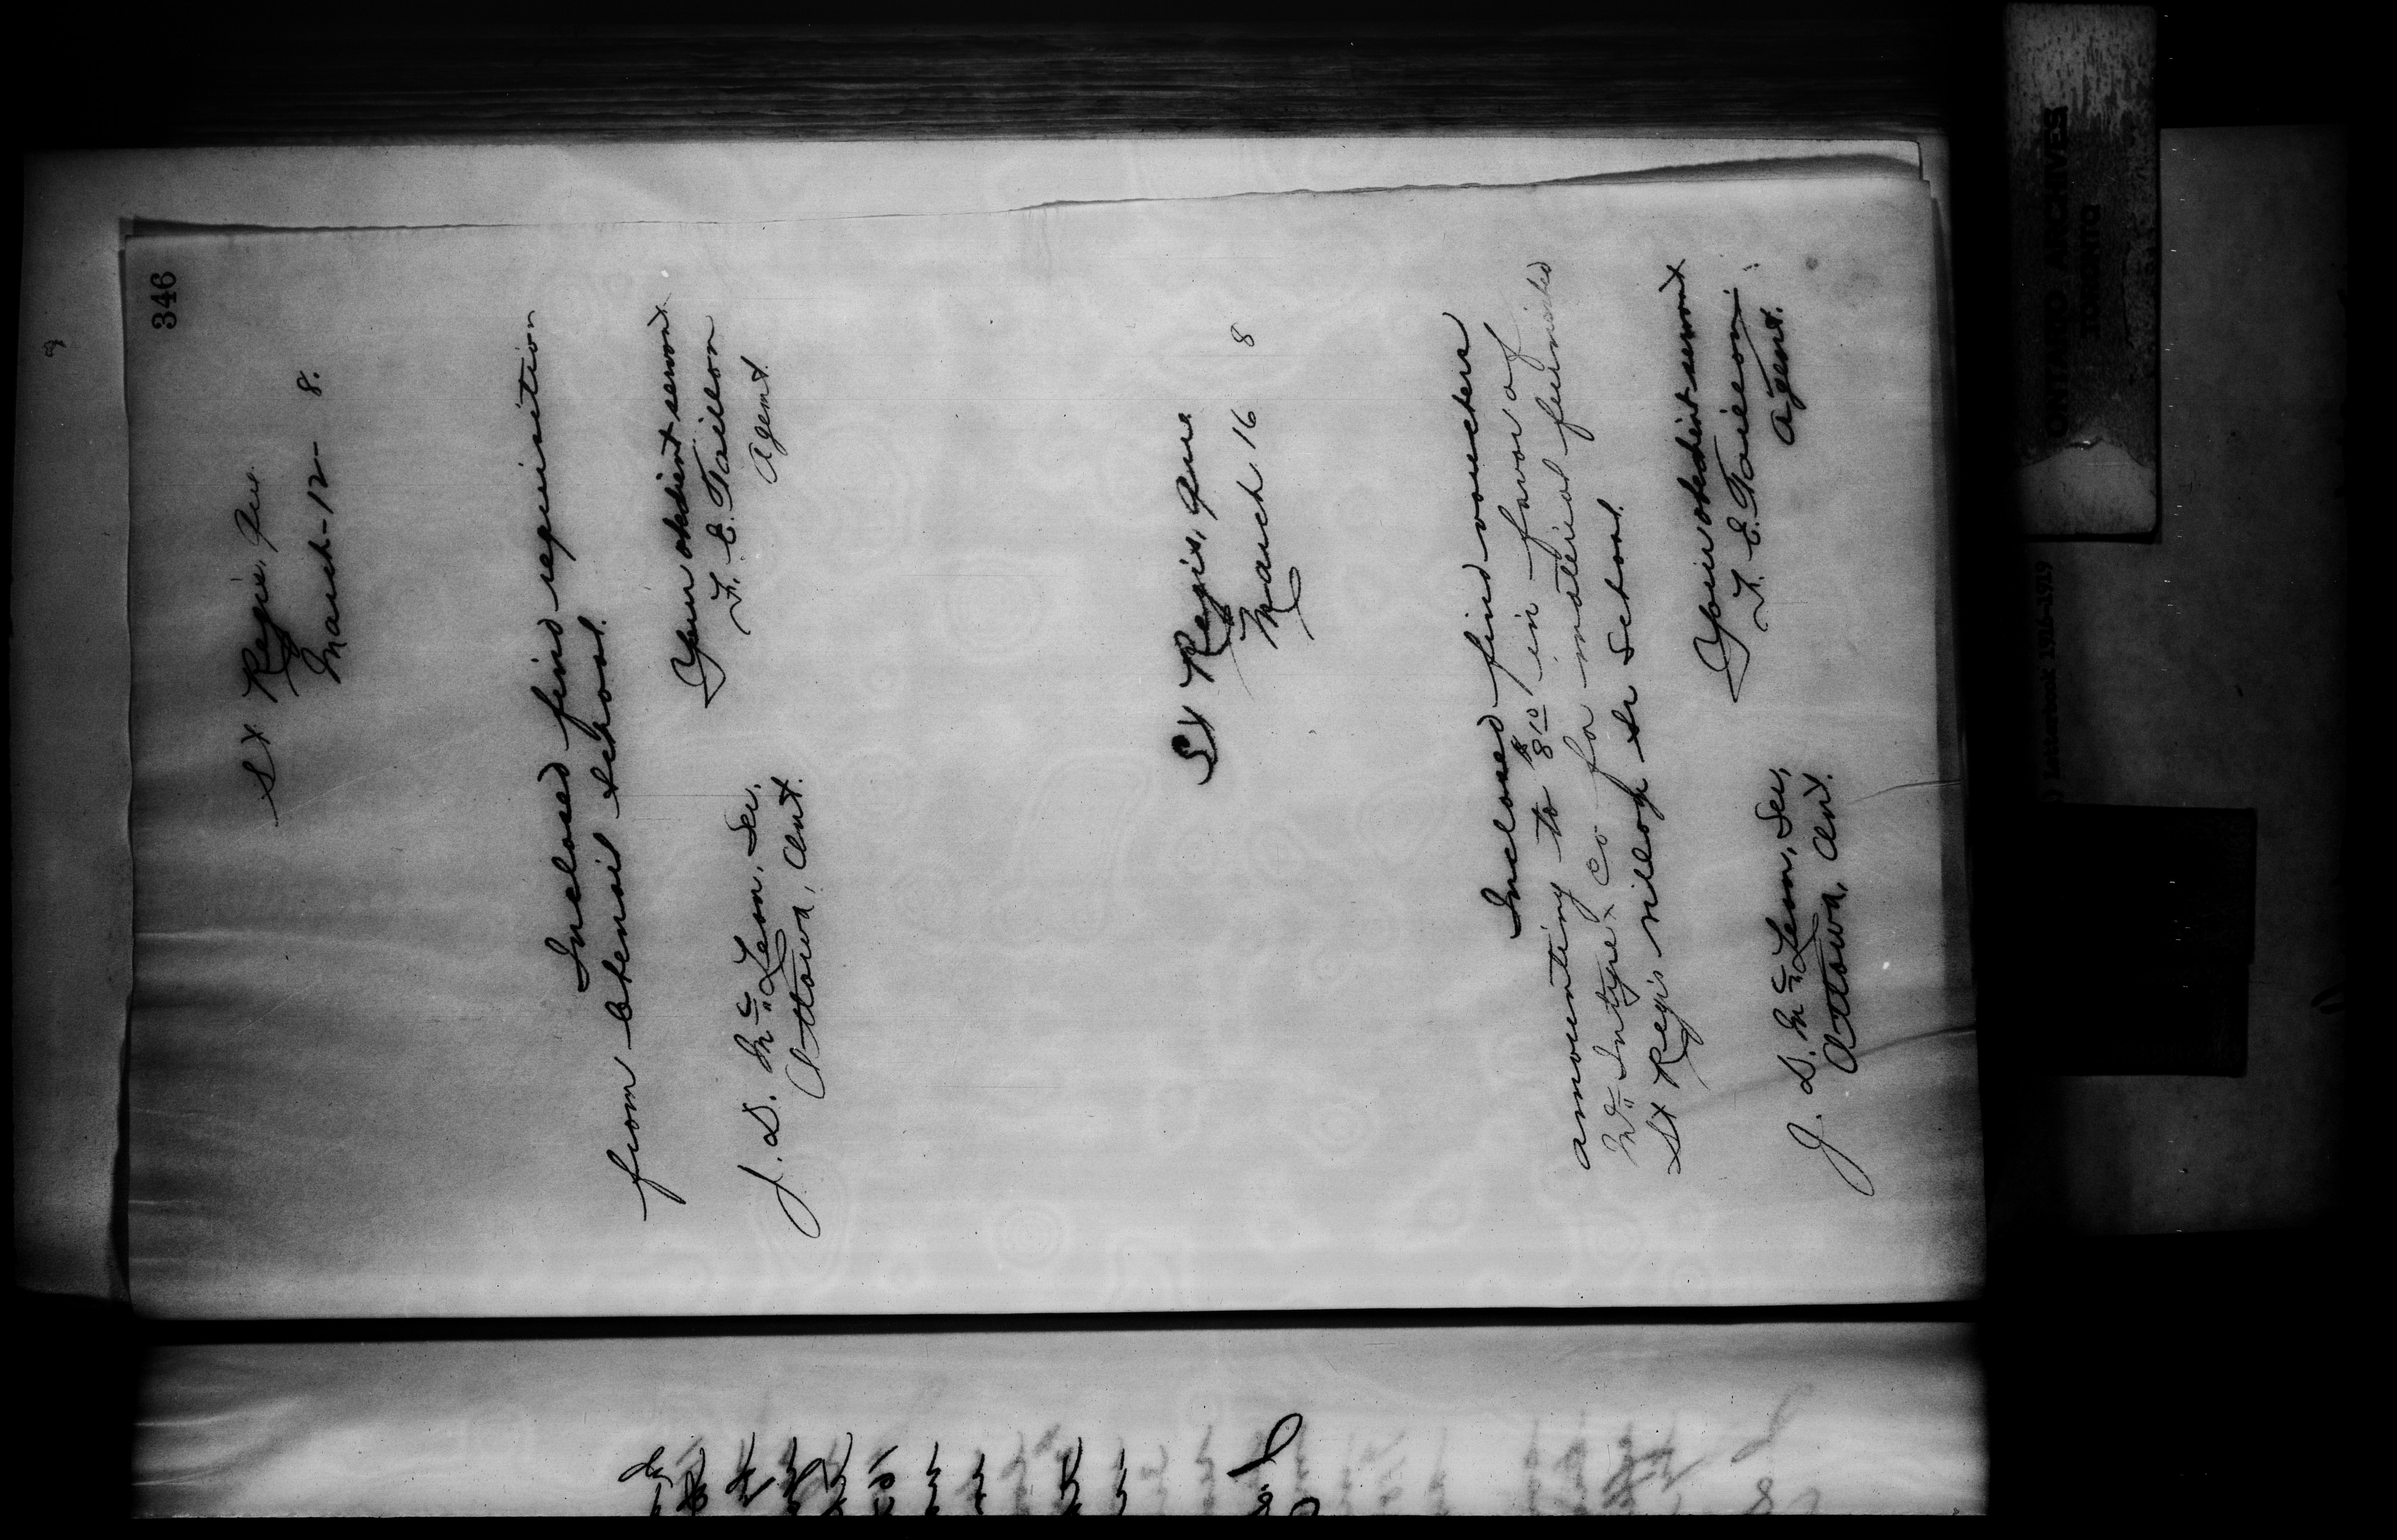 346
St Regis, Que.
March - 12 - 8.
Inclosed find requisition
from school.
Your obedient servant
F. E. Taillon
Agent.
J. D. McLean, Sec,
Ottawa, Ont.
St Regis, Que
March 16 8
Inclosed find voucher
amounting to $8.10 in favor of
McIntyre & Co for material furnished
St Regis village Sr School.
Your obedient servant
F. E. Taillon
Agent.
J. D. McLean, Sec,
Ottawa, Ont.
ONTARIO ARCHIVES
TORONTO
Letterbook 1916-1919